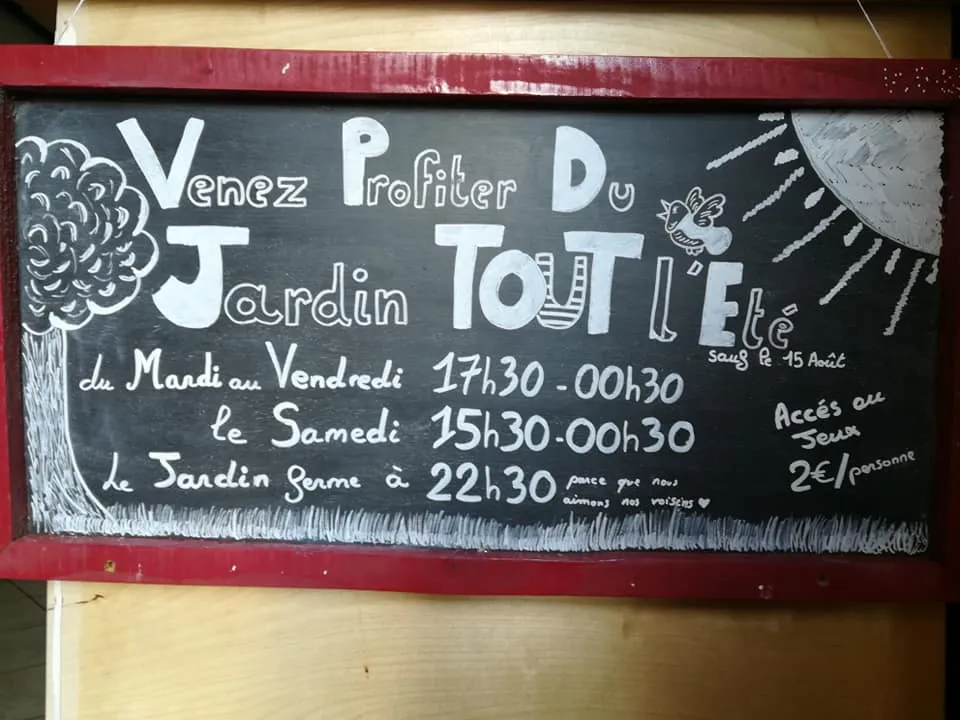 Venez Profiter Du
Jardin TOUT l'Eté
sauf le 15 Août
du Mardi au Vendredi 17h30-00h30
le Samedi 15h30-00h30
Le Jardin ferme à 22h30 parce que nous
aimons nos voisins ♥
Accés au
Jeux
2€/personne